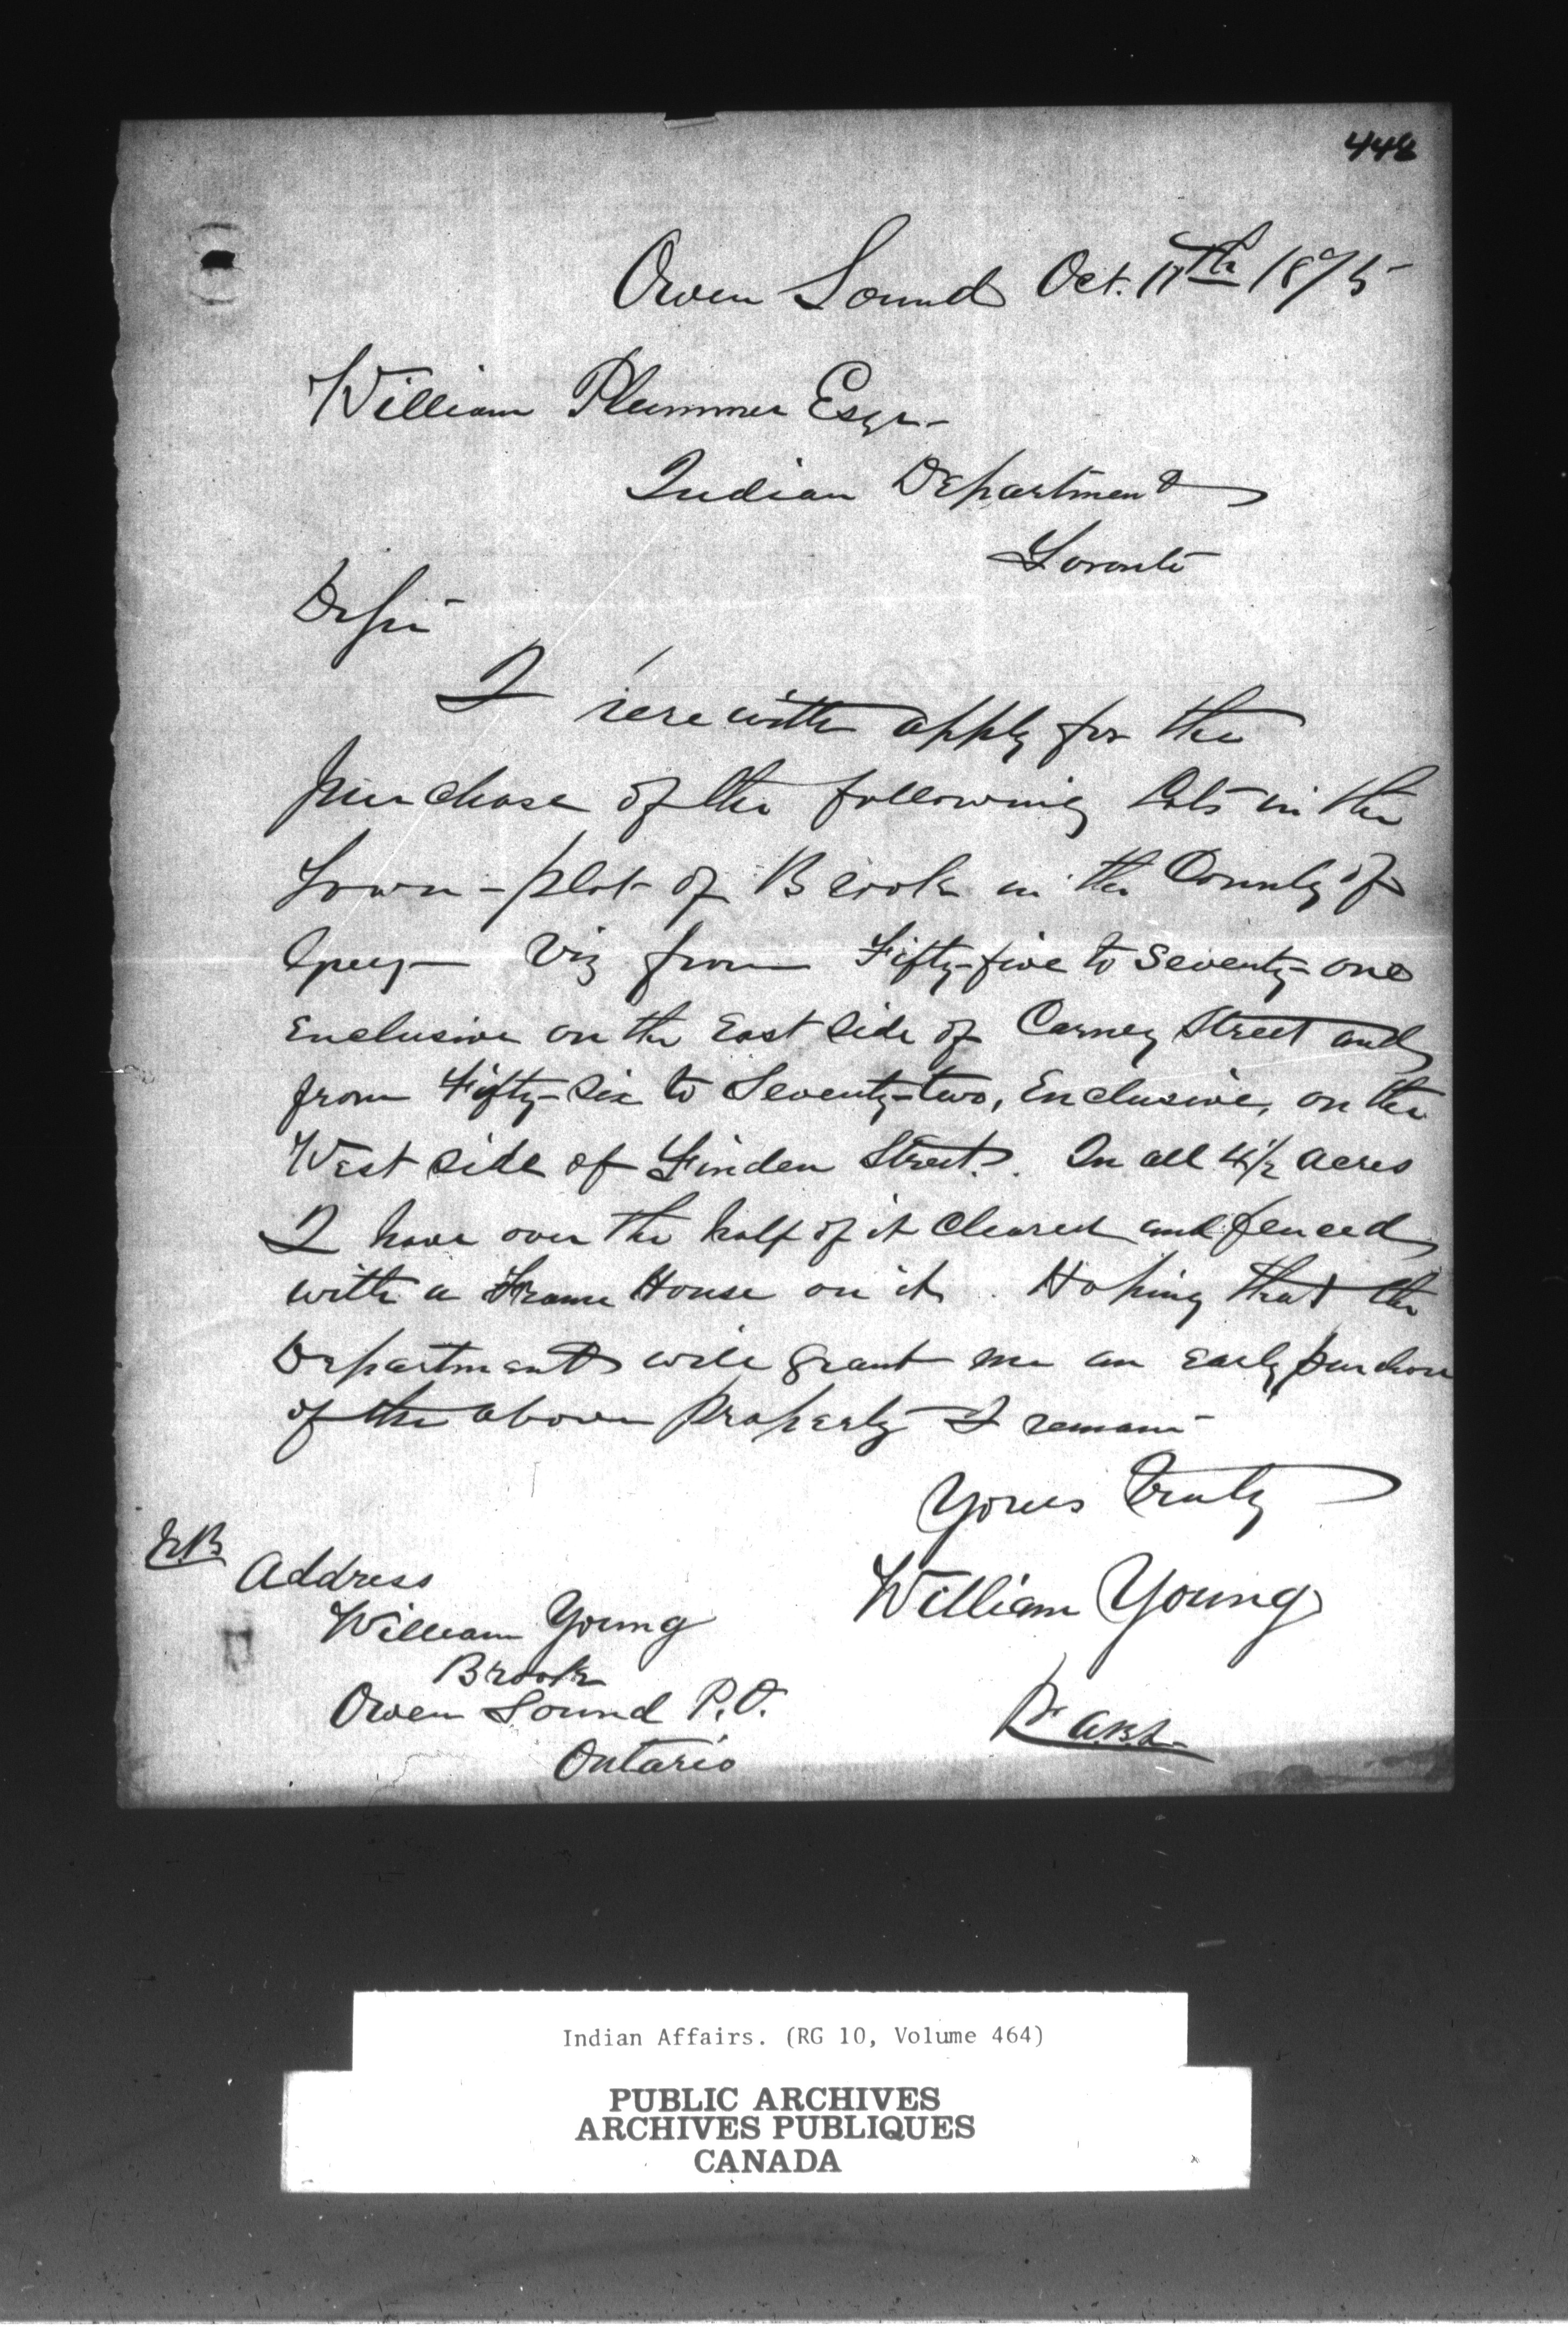 448
Owen Sound Oct. 11th 1875
William Plummer Esqr.
Indian Department
Toronto
Dr Sir
I herewith apply for the
purchase of the following Lots in the
Town-plot of Brook in the County of
Grey Viz from Fifty-five to Seventy-one
Enclusive on the East Side of Carney Street and
from Fifty-Six to Seventy-two, Enclusive, on the
West Side of Linden Street. In all 4 1/2 acres
I have over the half of it Cleared and fenced
with a Frame House on it. Hoping that the
Department will grant me an early purchase
of the above property I remain
Yours Truly
N.B.
Address
William Young
William Young
Brook
Owen Sound P.O.
Ontario
Indian Affairs. (RG 10, Volume 464)
PUBLIC ARCHIVES
ARCHIVES PUBLIQUES
CANADA